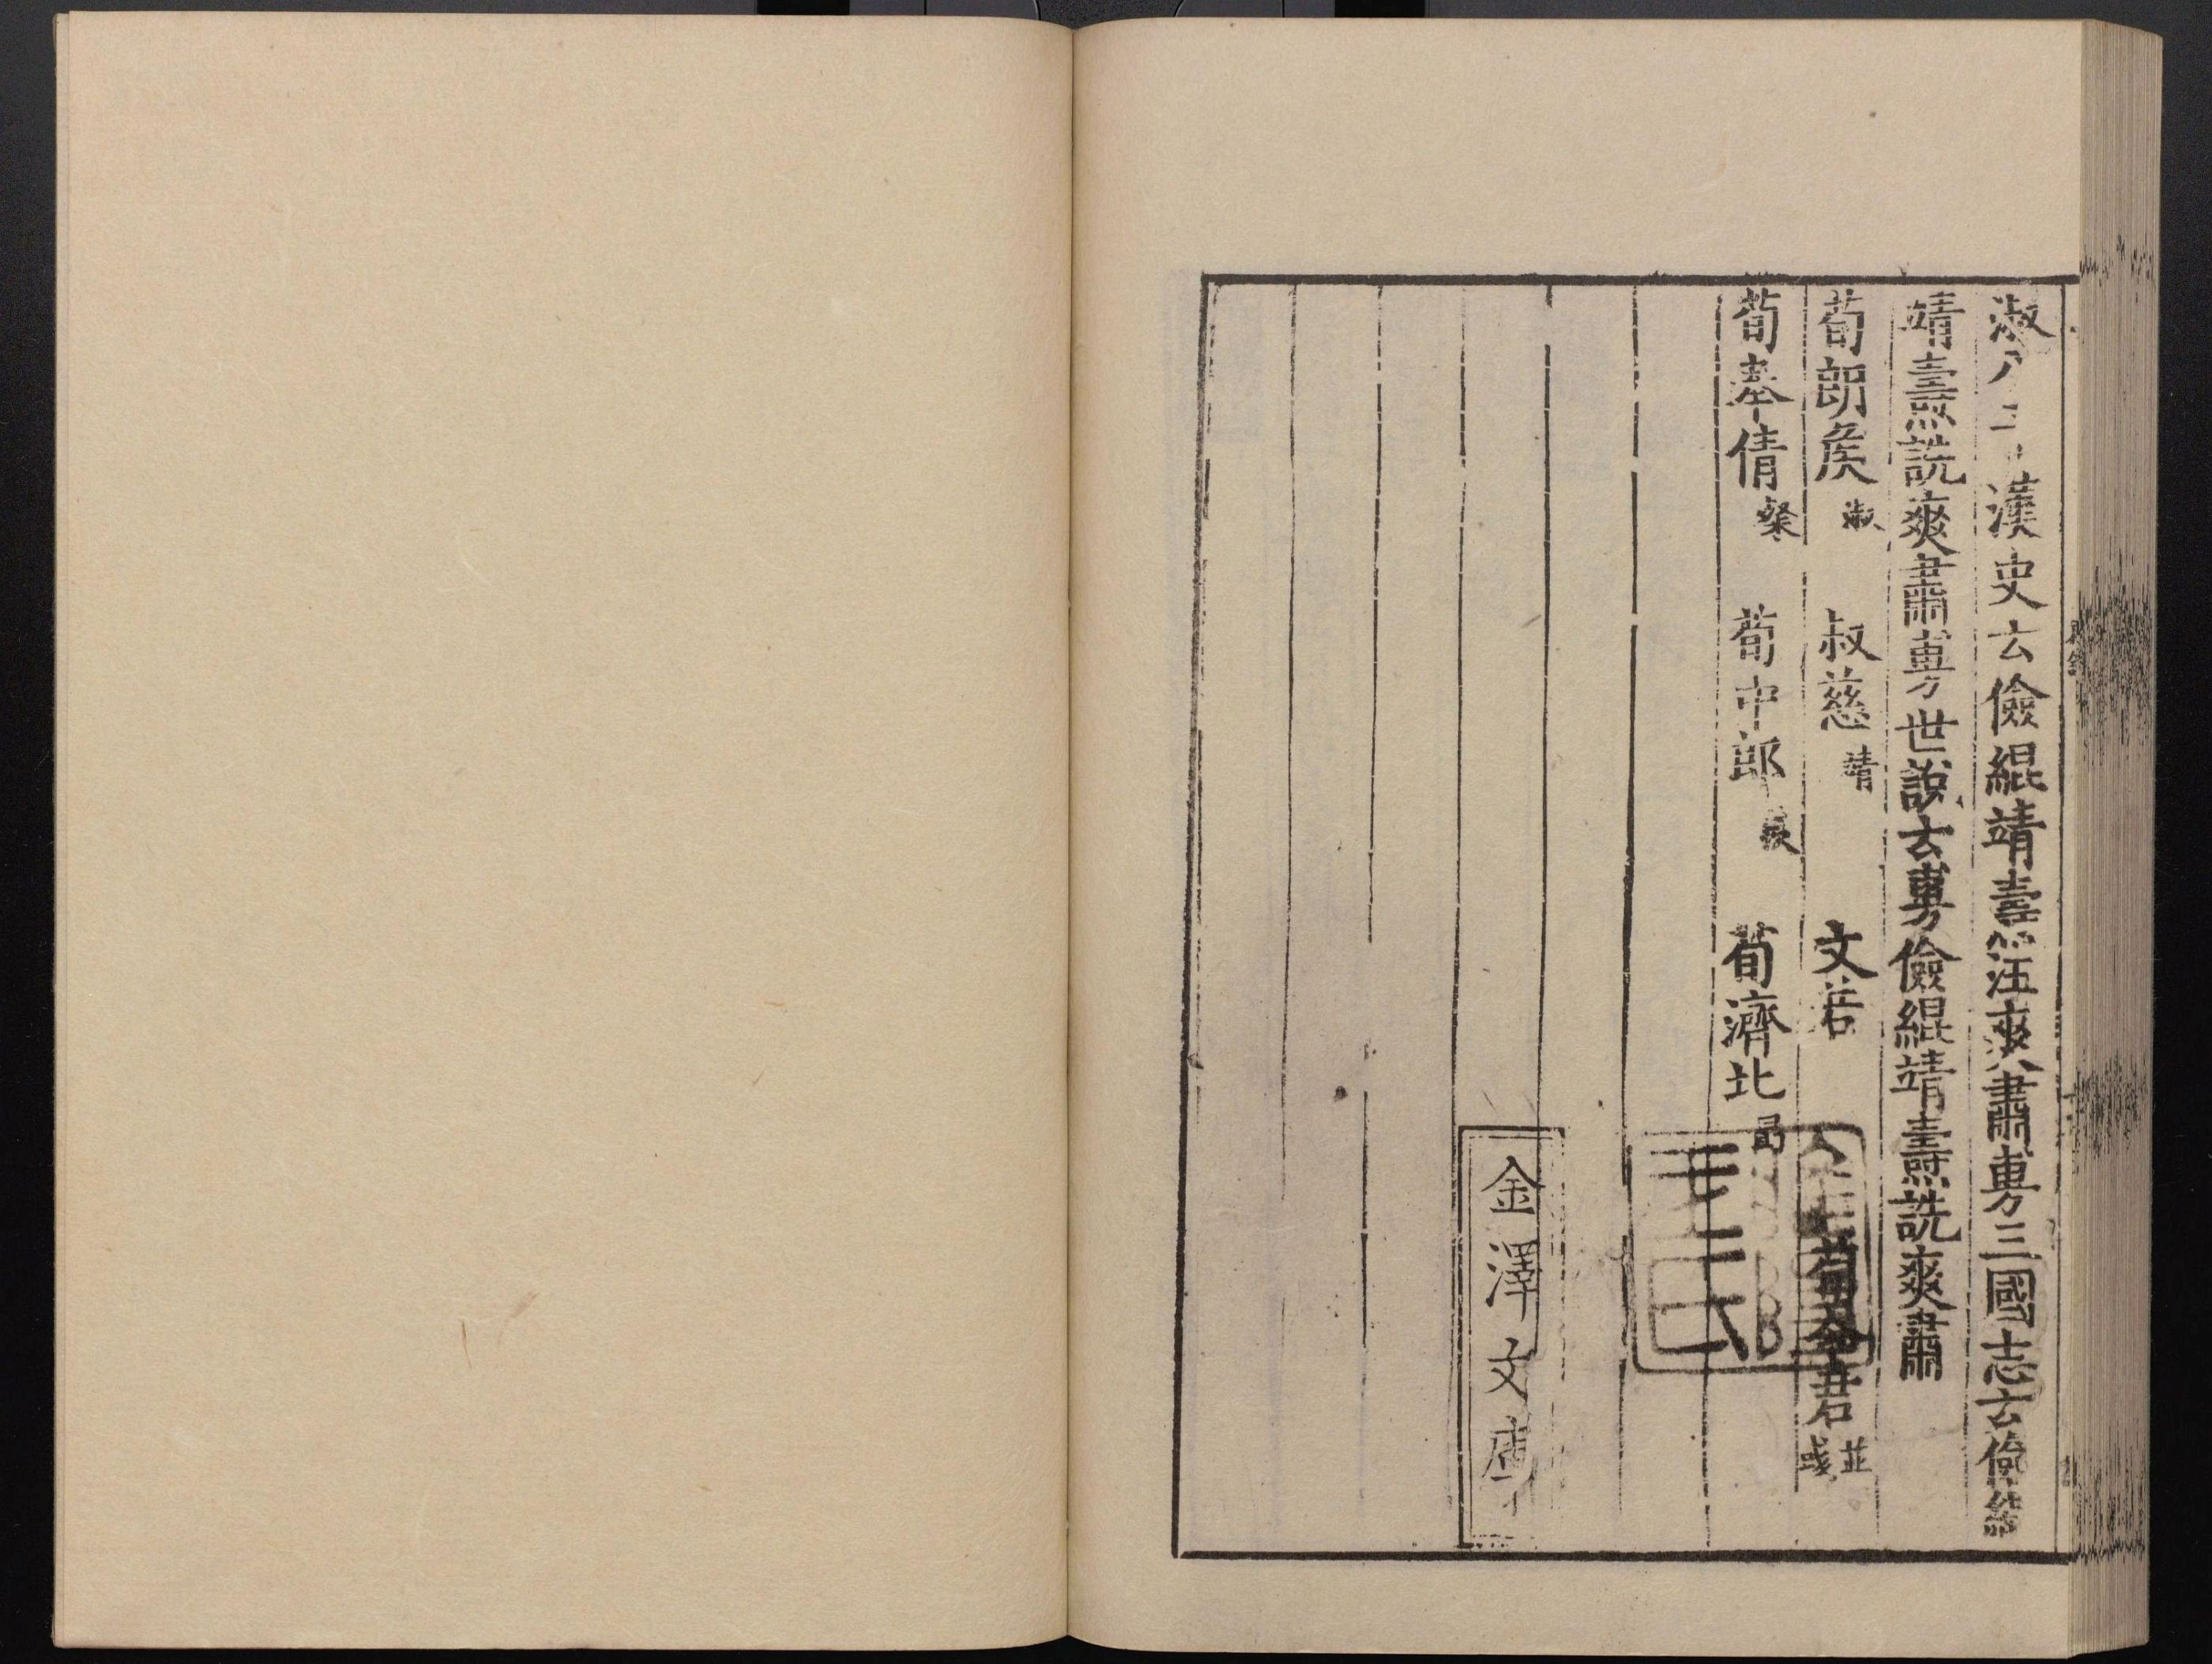 淑八子漢史云儉緄靖燾汪爽肅旉三國志云儉緄
靖燾詵爽肅旉世說云旉儉緄靖燾詵爽肅
荀朗矦淑 叔慈靖 文若 荀君並彧
荀奉倩粲 荀中郎羨 荀濟北勗
金澤文庫